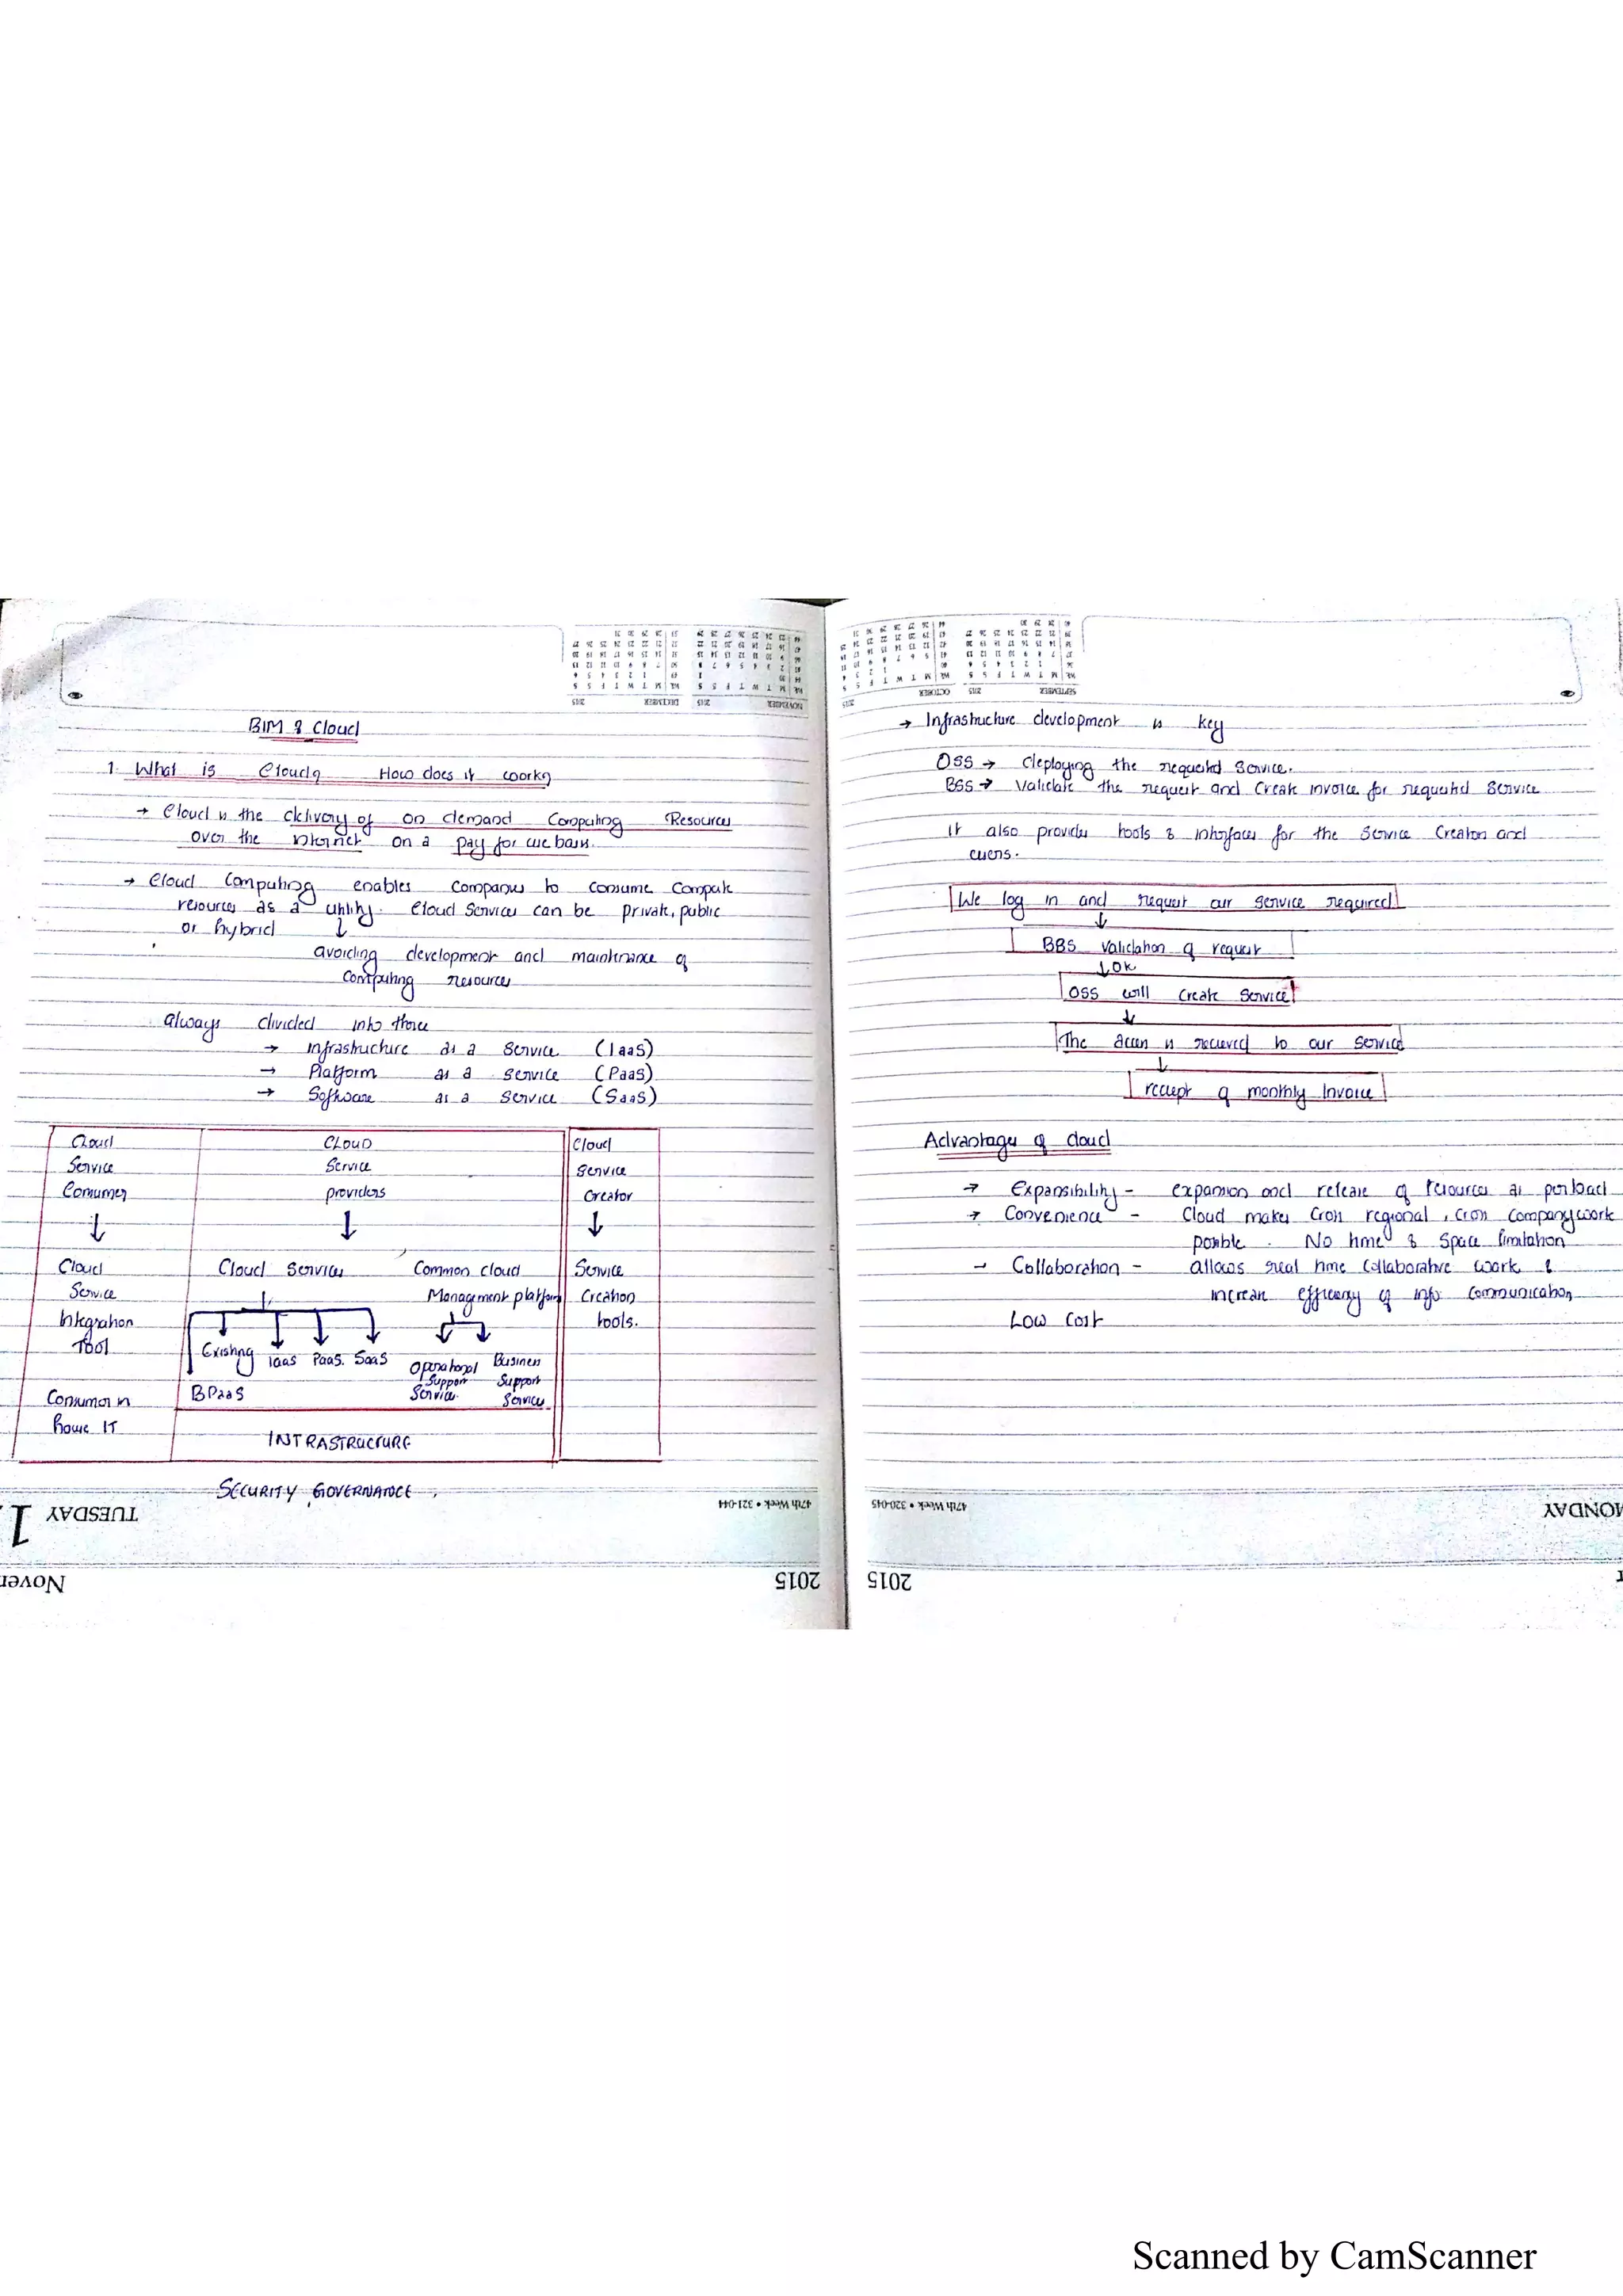 BIM & Cloud
1. What is Cloud? How does it work?
→ Cloud is the delivery of on demand Computing Resources
over the internet on a pay for use basis.
→ Cloud Computing enables companies to consume compute
resources as a utility. Cloud Services can be private, public
or hybrid ↓
avoiding development and maintenance of
Computing resources
always divided into three
→ Infrastructure as a Service (IaaS)
→ Platform as a service (PaaS)
→ Software as a service (SaaS)
Cloud CLOUD Cloud
Service Service Service
Consumer providers Creator
↓ ↓ ↓
Cloud Cloud Services Common cloud Service
Service Management platform Creation
Integration tools.
Tool Existing IaaS PaaS. SaaS Operational Business
Support Support
Consumer in BPaaS Service Services
house IT
INTRASTRUCTURE
SECURITY, GOVERNANCE,
TUESDAY 47th Week • 321-044
2015
→ Infrastructure development is key
OSS → deploying the requested Service.
BSS → Validate the request and Create invoice for requested Service
It also provides tools & interfaces for the Service Creators and
users.
We log in and request our service required
↓
BBS validation of request
↓ OK
OSS will Create Service
↓
The access is recieved to our Service
↓
reciept of monthly Invoice
Advantages of cloud
→ Expansibility - expansion and release of resources as per load
→ Convenience - Cloud makes Cross regional, Cross Company work
possible. No time & Space limitation
→ Collaboration - allows real time Collaborative work &
increase efficiency of info Communication
Low Cost
47th Week • 320-045 MONDAY
2015
Scanned by CamScanner